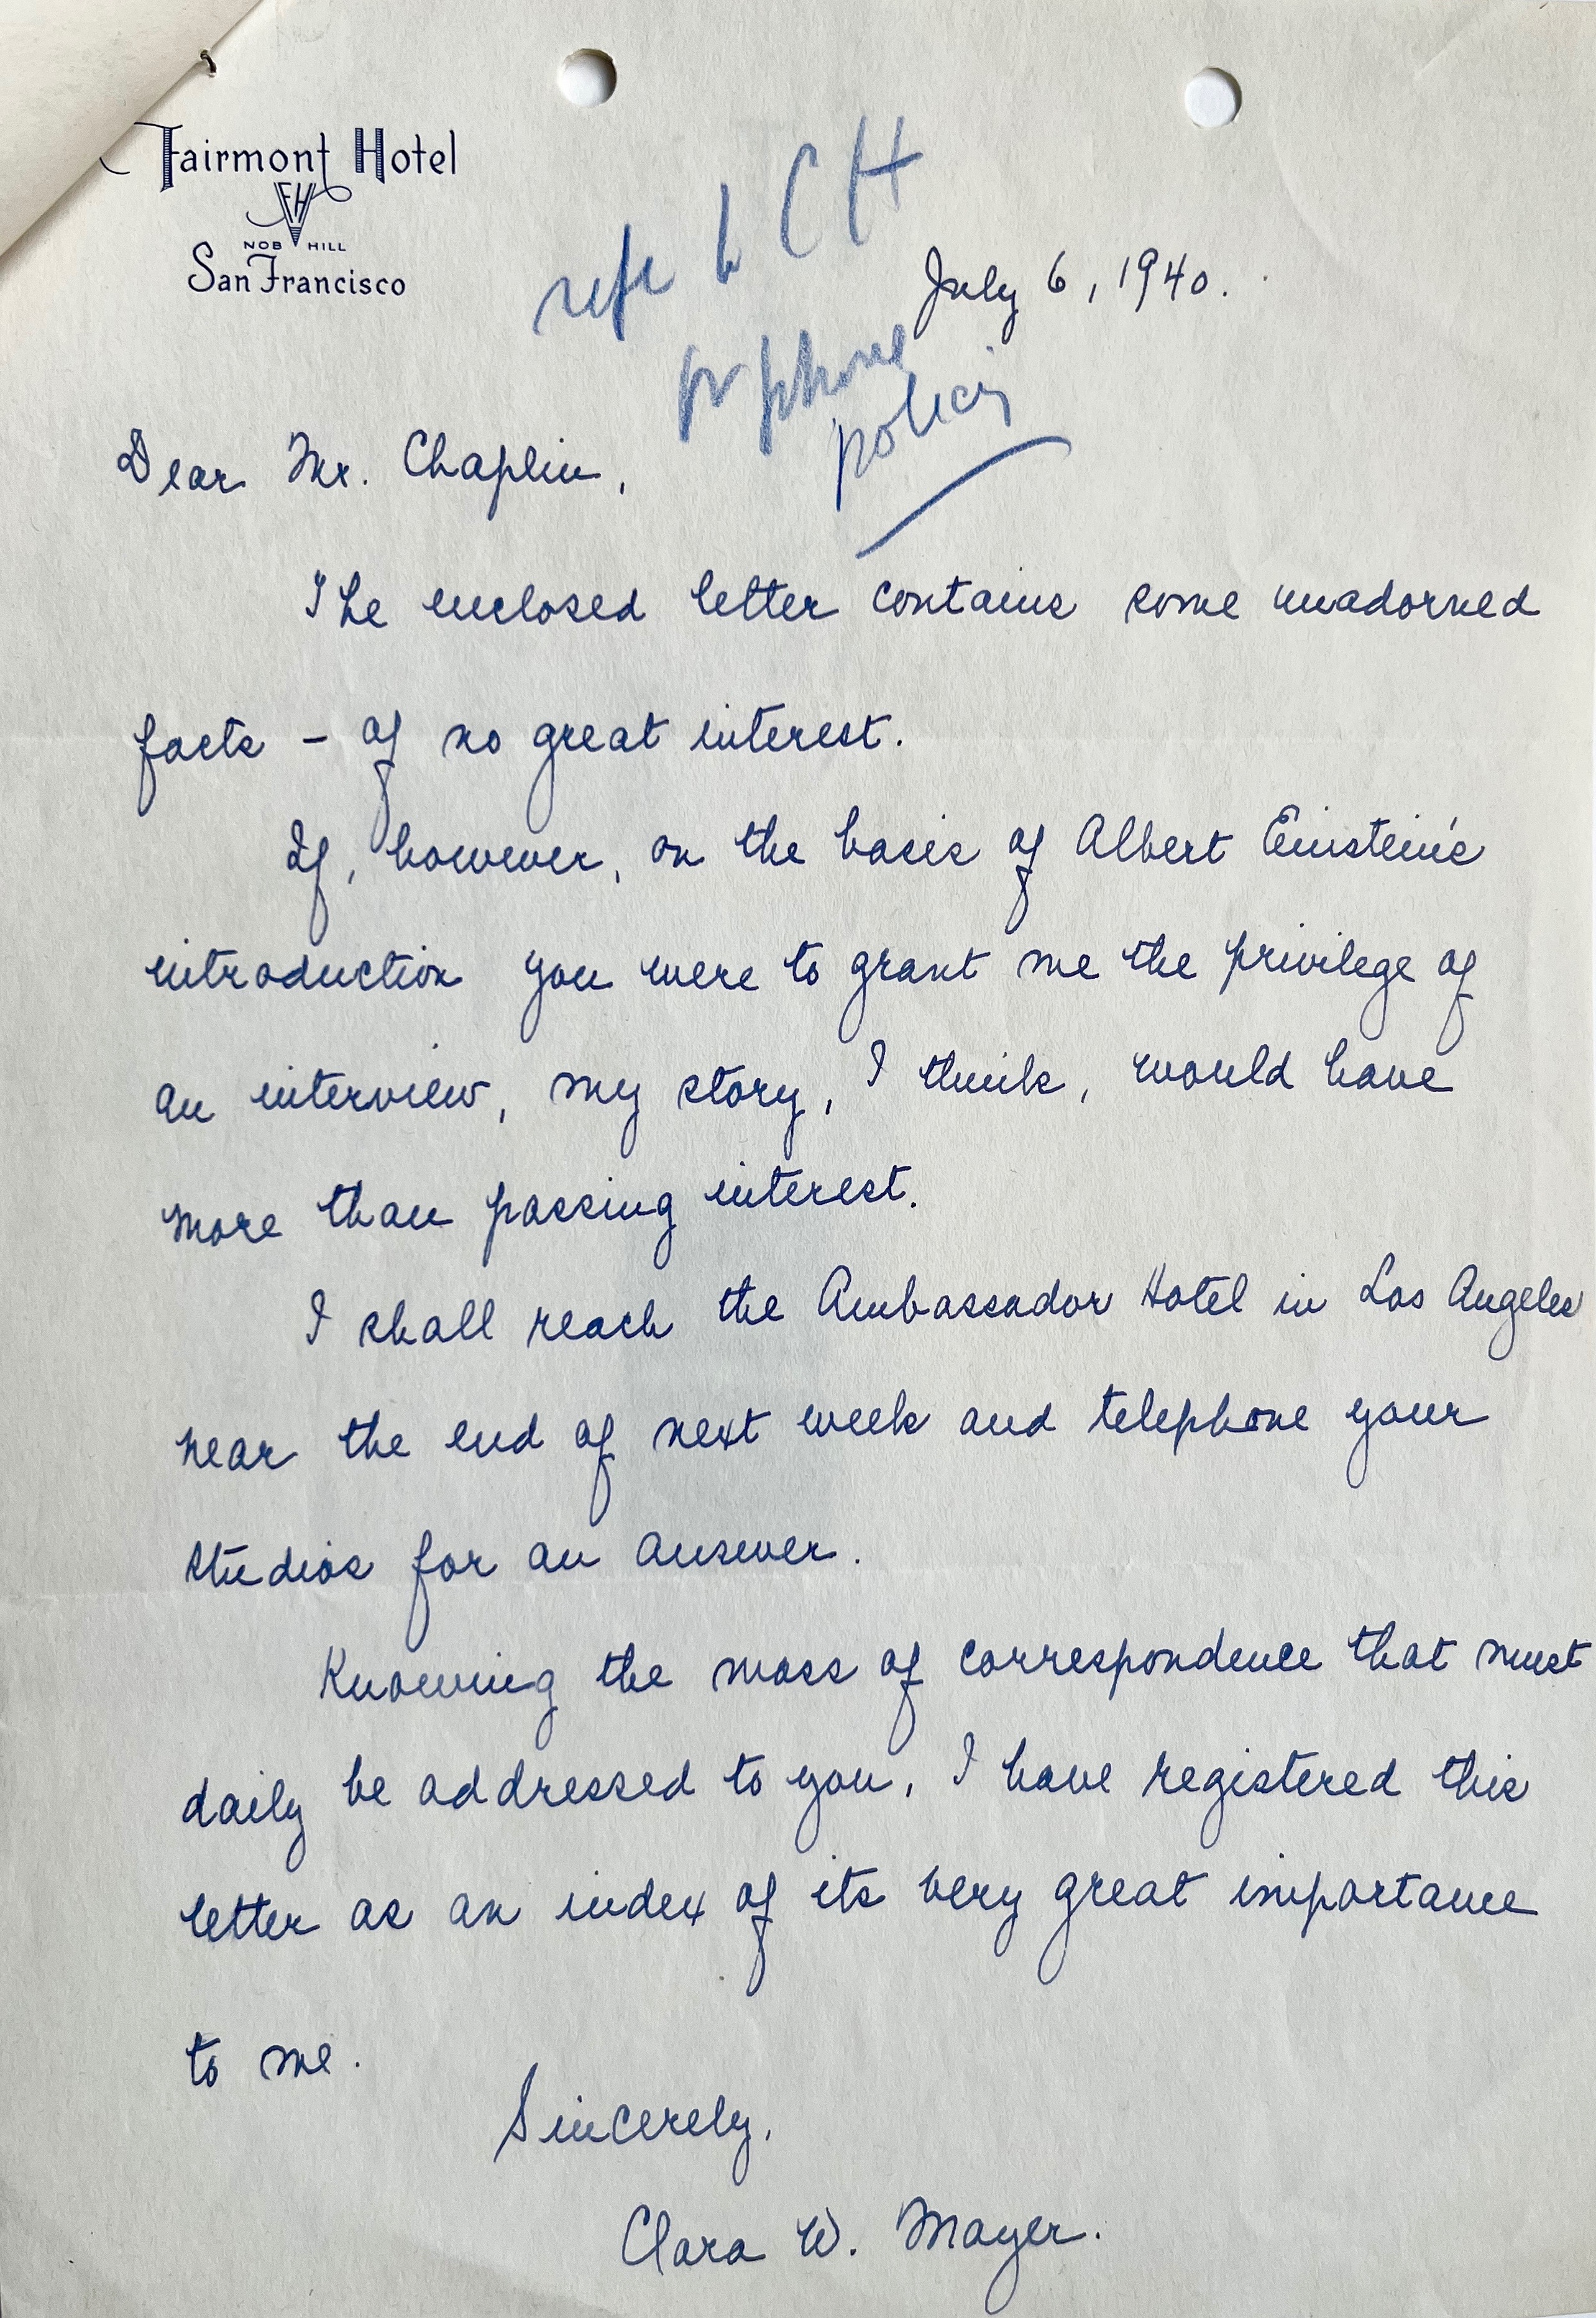 Fairmont Hotel
FH
NOB HILL
San Francisco
refer to CH
for phone
policy
July 6, 1940.
Dear Mr. Chaplin,
The enclosed letter contains some unadorned
facts – of no great interest.
If, however, on the basis of Albert Einstein's
introduction you were to grant me the privilege of
an interview, my story, I think, would have
more than passing interest.
I shall reach the Ambassador Hotel in Los Angeles
near the end of next week and telephone your
studios for an answer.
Knowing the mass of correspondence that must
daily be addressed to you, I have registered this
letter as an index of its very great importance
to me.
Sincerely,
Clara W. Mayer.